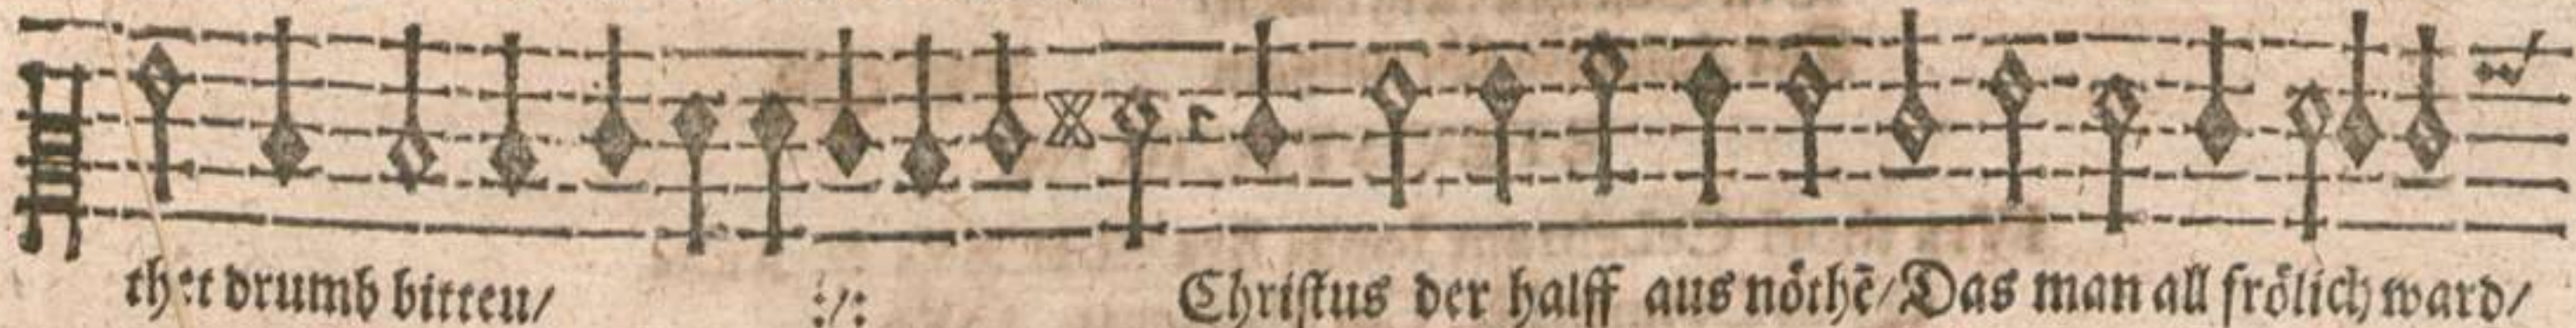 thet drumb bitten/ :/: Christus der halff aus nöthē/ Das man all frölich ward/